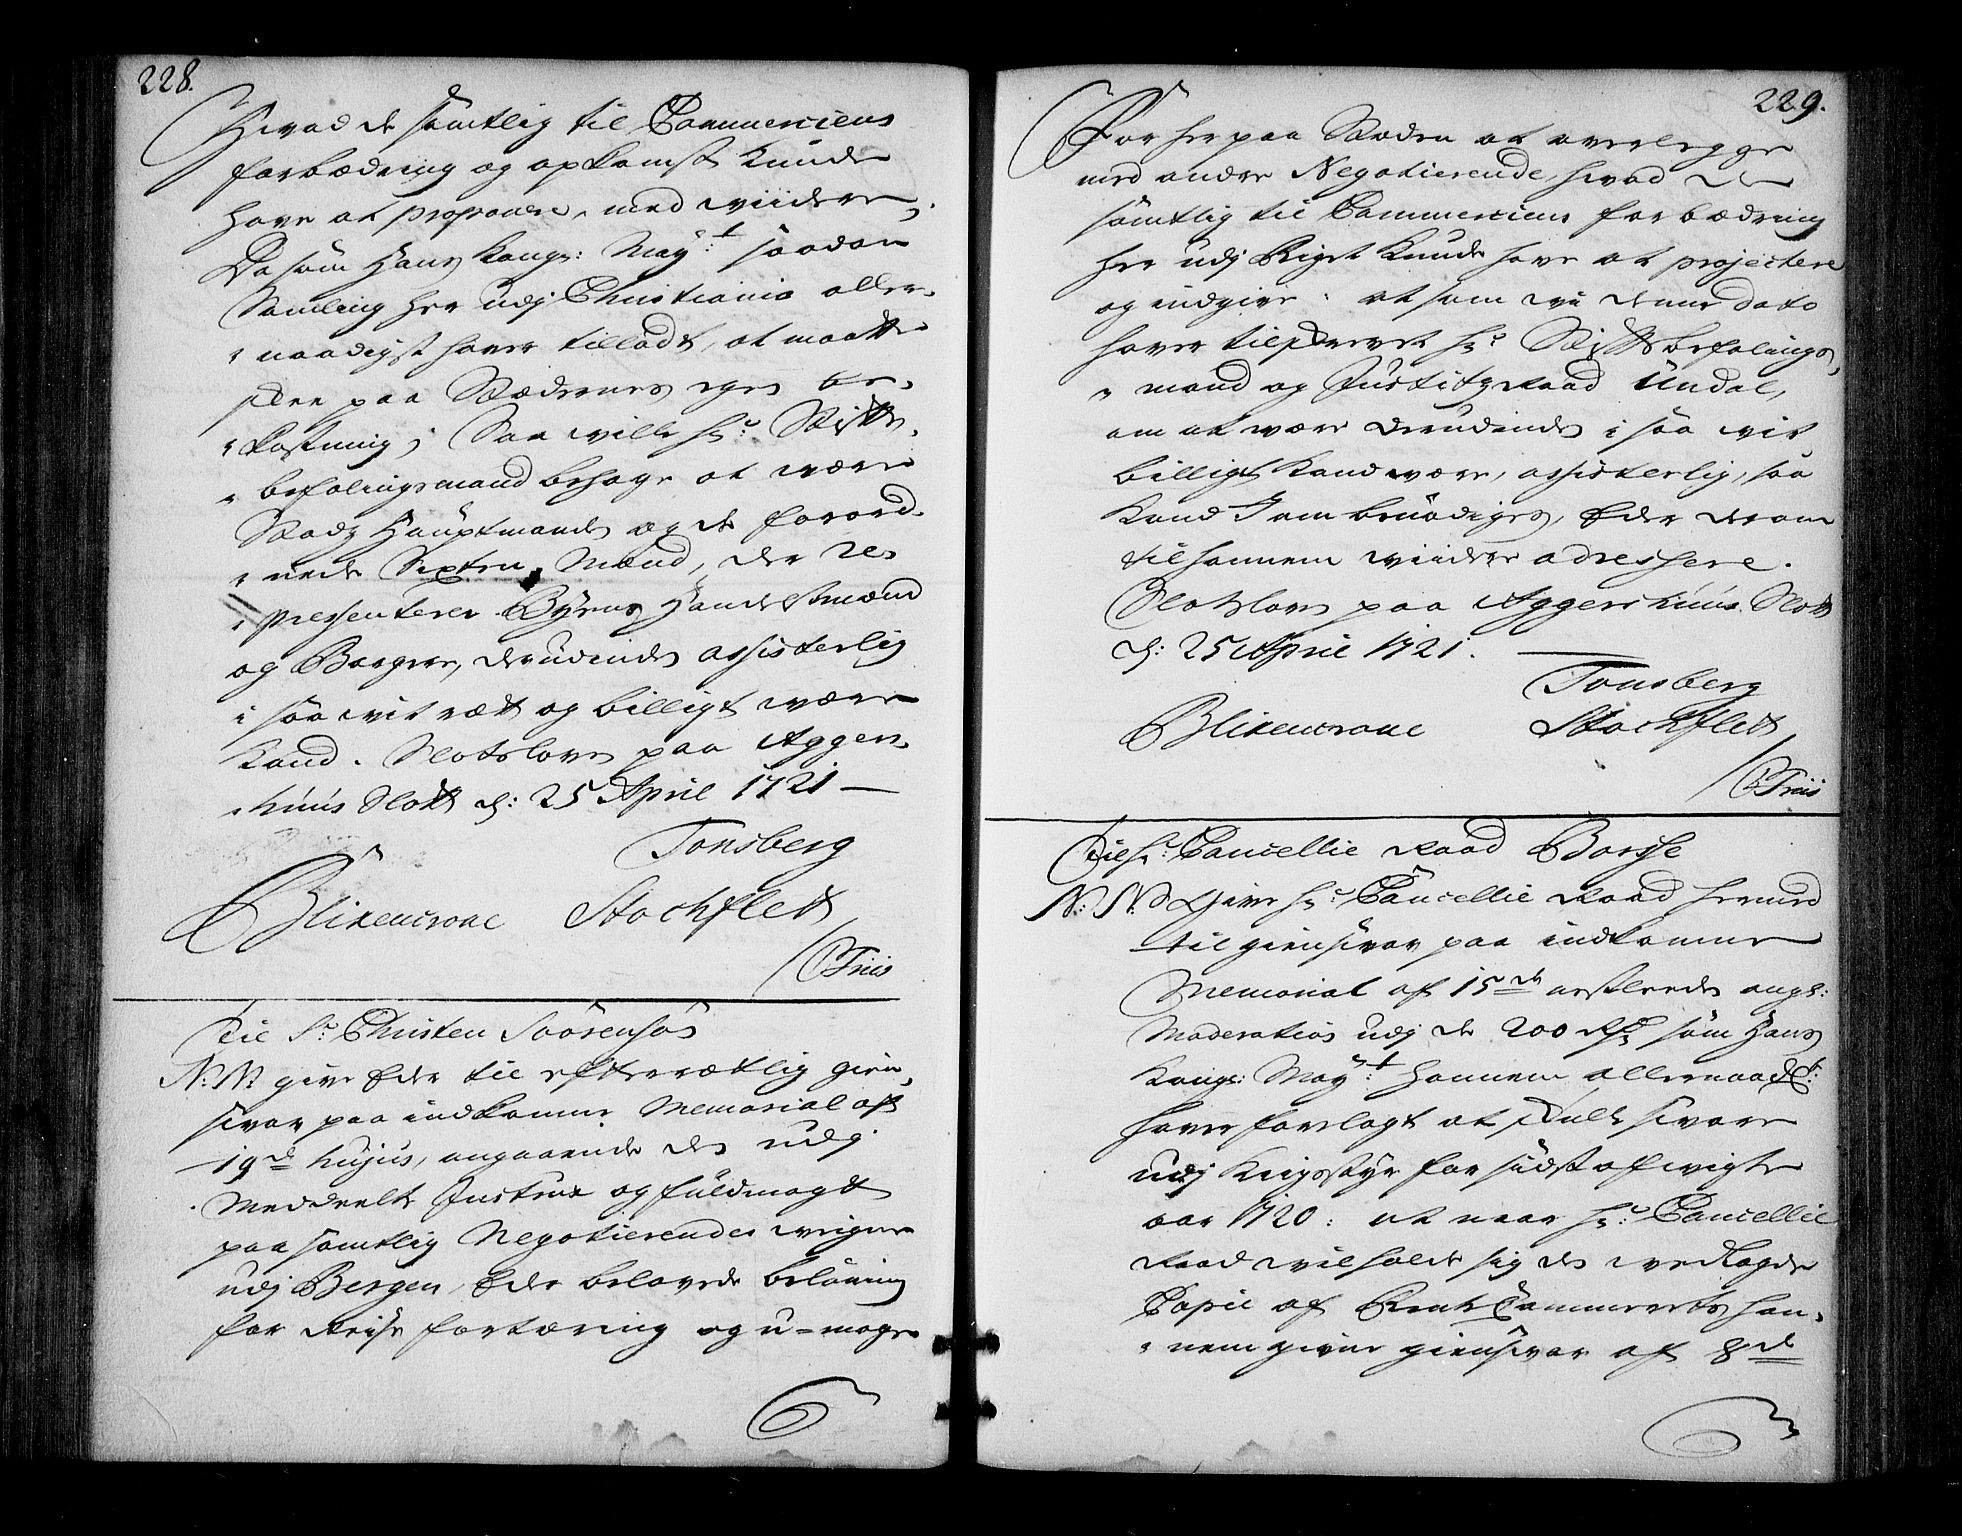 228.
Hvad de samtlig til Commerciens
forbædring og opkomst kunde
have at proponere, med viidere,
Da som Hans Kongl: May:t saadan
Samling her udj Christiania aller-
naadigst haver tilladt, at maatte
skee paa Stædernes egen be-
kostning; Saa ville hr: Stifts-
befalingsmand behage at være
Stadz Hauptmand og de forord-
nede Sexten Mænd, der re-
pressenterer Byens Handelsmænd
og Borgere, derudinde assisterlig
i saa vit ræt og billigt være
kand. Slotsloven paa Agger-
huus Slott d: 25 April 1721
Tonsberg
Blixencrone Stockflett
/ C Friis
Til Sr. Christen Sörensön
N: N: give Eder til efterrætlig gien-
svar paa indkomne Memorial af
19de hujus, angaaende den udj
Meddeelte Instrux og fuldmagt
paa samtlig Negotierendes vegne
udj Bergen, Eder belovede belöning
for Reise fortæring og u-mage
229.
For her paa Stæden at overlegge
med andre Negotierende, hvad de
samtlig til Commerciens forbædring
her udj Riget kunde have at projectere
og indgive: at som vi denne dato
haver tilskrevet hr: Stiftsbefalings-
mand og Justitz Raad Undal,
om at være derudinde i saa vit
billigt kand være, assisterlig, saa
kand I om benödiges, Eder derom
til hannem viidere adressere.
Slotsloven paa Aggershuus Slott
d: 25 April 1721.
Tonsberg
Blixencrone Stockflett
/ C Friis
Til hr: Cancellie Raad Borse
N: N: Give hr: Cancellie Raad hermed
til giensvar paa indkomne
Memorial af 15de nestleeden ang:
Moderation udj de 200 Rdr som Hans
Kongl: May:t hannem allernaadt:
haver forelagt at skulle svare
udj Krigsstyr for sidst afvigte
aar 1720: at naar hr: Cancellie
Raad vil holde sig den vedlagde
Copie af Rente Cammerets han-
nem givne giensvar af 8de